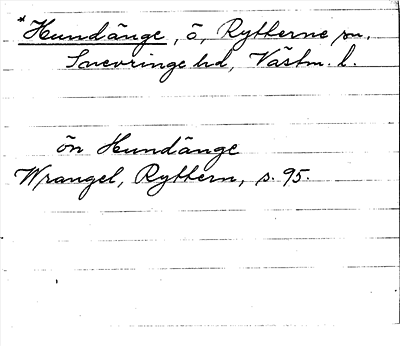 *Hundänge, ö, Rytterne sn,
Snevringe hd, Västm. l.
ön Hundänge
Wrangel, Ryttern, s. 95.